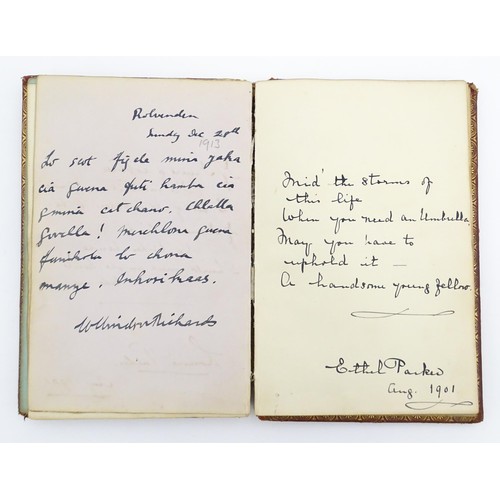 Rolvenden
Sunday Dec 28th
1913
lo scot figela mina yaka
cia guena futi hamba cia
gmina cat chano. Chlalla
Govella! Merchlona guena
funihota lo chona
manye. Inkosikaas.
Mid' the storms of
this life
When you need an Umbrella,
May you have to
uphold it —
A handsome young fellow.
Ethel Parker
Aug. 1901